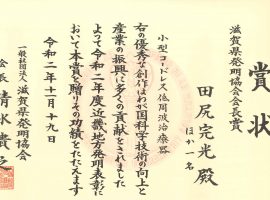 賞状
滋賀県発明協会会長賞
小型コードレス低周波治療器
田尻完光殿
ほか一名
右の優秀な創作はわが国科学技術の向上と
産業の振興に多くの貢献をされました
よって令和二年度近畿地方発明表彰に
おいて本賞を贈りその功績をたたえます
令和二年十一月十九日
一般社団法人滋賀県発明協会
会長清水貴之